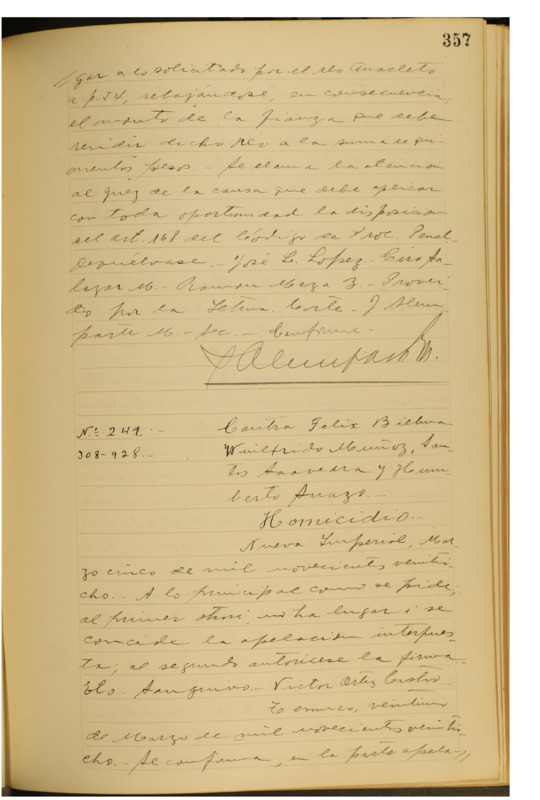 357
gar a lo solicitado por el reo Anacleto
a p. 5 v, rebajándose, en consecuencia,
el monto de la fianza que debe
rendir dicho reo a la suma de qui-
nientos pesos. - Se llama la atención
al juez de la causa que debe aplicar
con toda oportunidad la disposición
del art. 168 del Código de Proc. Penal.
Devuélvase. - José L. López - Ciro Sa-
lazar M. - Ramon Meza B. - Provei-
do por la Iltma. Corte. - J Alem-
parte M - Sec - Conforme -
N.º 241. -
308-928. -
Contra Felix
Winlfrido Muñoz, San-
tos Saavedra y Hum-
berto Suazo. -
Homicidio. -
Nueva Imperial, Mar-
zo cinco de mil novecientos veintio-
cho. - A lo principal como se pide;
al primer otrosí no ha lugar i se
concede la apelación interpues-
ta; al segundo autorícese la firma -
Victor Ortiz Castro -
Temuco, veintiuno
de Marzo de mil novecientos veintio-
cho. - Se confirma, en la parte apela-